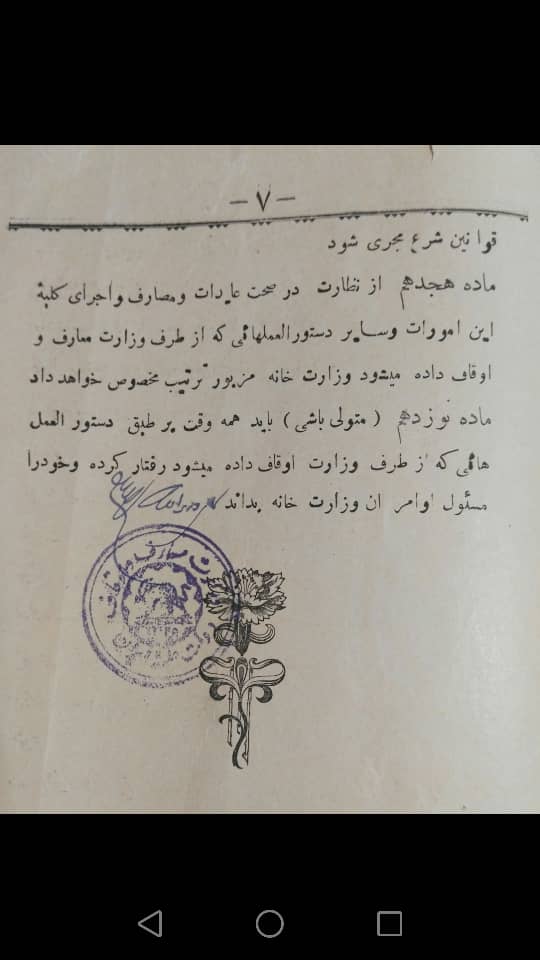 — ۷ —
قوانین شرع مجری شود
ماده هجدهم از نظارت در صحت عایدات ومصارف واجرای کلیهٔ
این امورات وسایر دستورالعملهائی که از طرف وزارت معارف و
اوقاف داده میشود وزارت خانه مزبور ترتیب مخصوص خواهد داد
ماده نوزدهم (متولی باشی) باید همه وقت بر طبق دستور العمل
هائی که از طرف وزارت اوقاف داده میشود رفتار کرده وخودرا
مسئول اوامر ان وزارت خانه بداند
وزارت معارف و اوقاف